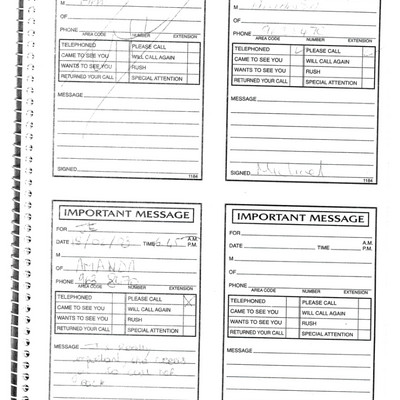 M
OF
PHONE
AREA CODE NUMBER EXTENSION
TELEPHONED PLEASE CALL
CAME TO SEE YOU WILL CALL AGAIN
WANTS TO SEE YOU RUSH
RETURNED YOUR CALL SPECIAL ATTENTION
MESSAGE
SIGNED
1184
M
OF
PHONE
AREA CODE NUMBER EXTENSION
TELEPHONED PLEASE CALL
CAME TO SEE YOU WILL CALL AGAIN
WANTS TO SEE YOU RUSH
RETURNED YOUR CALL SPECIAL ATTENTION
MESSAGE
SIGNED
1184
IMPORTANT MESSAGE
FOR JE
DATE TIME 6.45 A.M. P.M.
M
OF AMANDA
PHONE
AREA CODE NUMBER EXTENSION
TELEPHONED PLEASE CALL X
CAME TO SEE YOU WILL CALL AGAIN
WANTS TO SEE YOU RUSH
RETURNED YOUR CALL SPECIAL ATTENTION
MESSAGE The
call her
BACK
IMPORTANT MESSAGE
FOR
DATE TIME A.M. P.M.
M
OF
PHONE
AREA CODE NUMBER EXTENSION
TELEPHONED PLEASE CALL
CAME TO SEE YOU WILL CALL AGAIN
WANTS TO SEE YOU RUSH
RETURNED YOUR CALL SPECIAL ATTENTION
MESSAGE